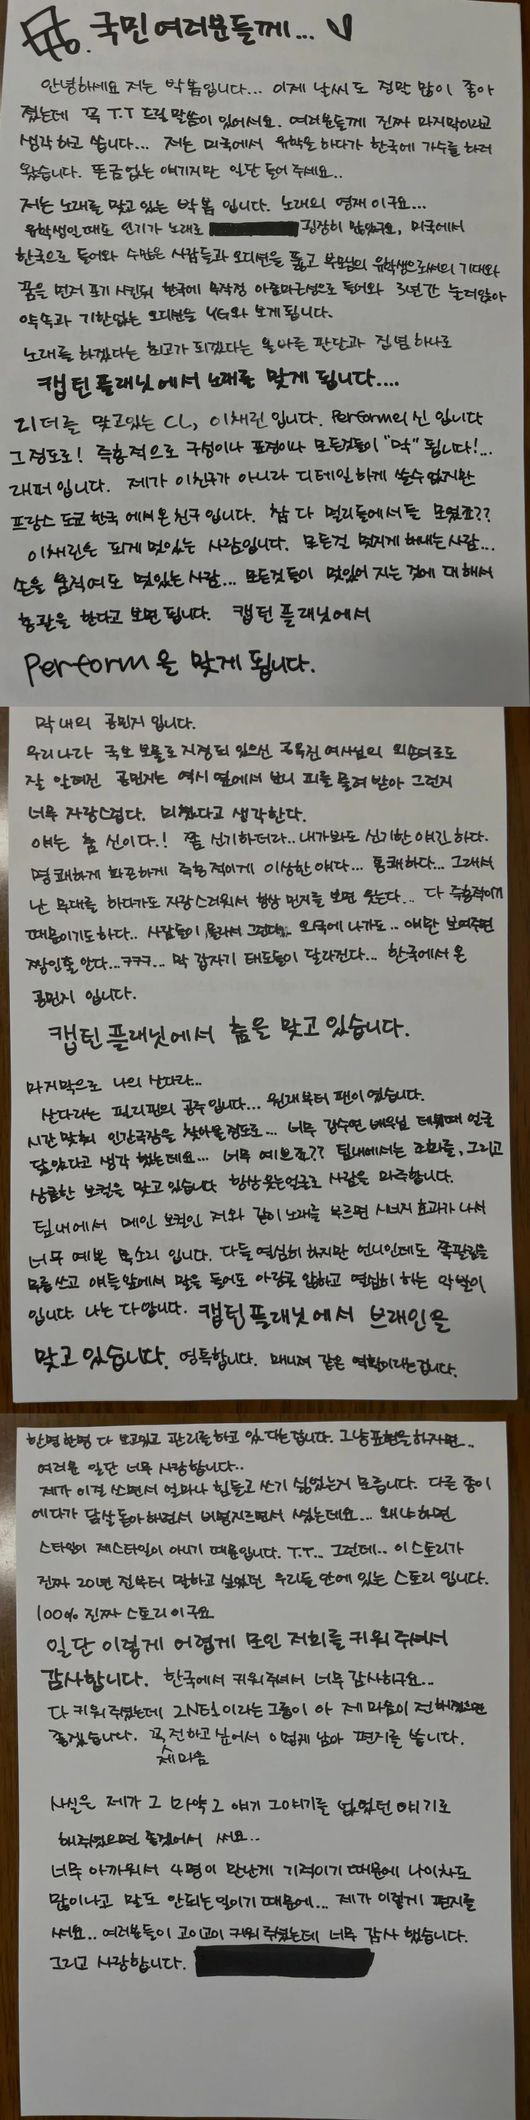 To. 국민여러분들께...
안녕하세요 저는 박봄입니다... 이제 날씨도 정말 많이 좋아
졌는데 꼭 T.T 드릴 말씀이 있어서요. 여러분들께 진짜 마지막이라고
생각하고 씁니다... 저는 미국에서 유학을 하다가 한국에 가수를 하러
왔습니다. 뜬금없는 얘기지만 일단 들어 주세요..
저는 노래를 맞고 있는 박봄 입니다. 노래의 영재 이구요...
유학생인때도 인기가 노래로 굉장히 많았구요, 미국에서
한국으로 들어와 수많은 사람들과 오디션을 뚫고 부모님의 유학생으로써의 기대와
꿈을 먼저 포기 시킨뒤 한국에 무작정 아줌마근성으로 들어와 3년간 눌러앉아
약속과 기한없는 오디션을 YG와 보게 됩니다.
노래를 하겠다는 최고가 되겠다는 올바른 판단과 집념 하나로
캡틴 플래닛에서 노래를 맞게 됩니다....
리더를 맞고있는 CL, 이채린 입니다. Perform의 신 입니다
그정도로! 즉흥적으로 구성이나 표정이나 모든것들이 "막" 됩니다!...
래퍼 입니다. 제가 이친구가 아니라 디테일하게 쓸수 없지만
프랑스 도쿄 한국 에서 온 친구 입니다. 참 다 멀리들에서들 모였죠??
이채린은 되게 멋있는 사람입니다. 모든걸 멋지게 해내는사람...
손을 움직여도 멋있는 사람... 모든것들이 멋있어 지는 것에 대해서
총괄을 한다고 보면 됩니다. 캡틴 플래닛에서
Perform을 맞게 됩니다.
막내의 공민지 입니다.
우리나라 국보 보물로 지정되 있으신 공옥진 여사님의 외손녀로도
잘 알려진 공민지는 역시 옆에서 보니 피를 물려 받아 그런지
너무 자랑스럽다. 미쳤다고 생각한다.
얘는 춤 신이다.! 쫌 신기하더라.. 내가봐도 신기한 애긴 하다.
명쾌하게 화끈하게 즉흥적이게 이상한 얘다... 통쾌하다... 그래서
난 무대를 하다가도 자랑스러워서 항상 민지를 보면 웃는다... 다 즉흥적이기
때문이기도 하다.. 사람들이 몰라서 그런데.. 외국에 나가도.. 얘만 보여주면
짱인줄 안다...ㅋㅋㅋ... 막 갑자기 태도들이 달라진다... 한국에서 온
공민지 입니다.
캡틴 플래닛에서 춤을 맞고 있습니다.
마지막으로 나의 산다라...
산다라는 필리핀의 공주 입니다... 원래부터 팬이 였습니다.
시간 맞춰 인간극장을 찾아볼 정도로... 너무 강수연 배우님 데뷔때 얼굴
닮았다고 생각 했는데요... 너무 예쁘죠?? 팀내에서는 조화를, 그리고
상큼한 보컬을 맞고 있습니다 항상웃는얼굴로 사람을 마주합니다.
팀내에서 메인 보컬인 저와 같이 노래를 부르면 시너지 효과가 나서
너무 예쁜 목소리 입니다. 다들 열심히 하지만 언니인데도 쪽팔림을
무릅쓰고 얘들 앞에서 말을 들어도 아랑곳 않하고 열심히 하는 악발이
입니다. 나는 다 압니다. 캡틴플래닛에서 브레인을
맞고 있습니다. 영특합니다. 매니져 같은 역할이라는겁니다.
한명 한명 다 보고있고 관리를 하고 있다는 겁니다. 그냥표현을 하자면..
여러분 일단 너무 사랑합니다..
제가 이걸 쓰면서 얼마나 힘들고 쓰기 싫었는지 모릅니다. 다른 종이
에다가 닭살 돋아 하면서 비명지르면서 썼는데요... 왜냐하면
스타일이 제스타일이 아니기 때문입니다. T.T... 그런데.. 이 스토리가
진짜 20년 전부터 말하고 싶었던 우리들 안에 있는 스토리 입니다.
100% 진짜 스토리 이구요
일단 이렇게 어렵게 모인 저희를 키워 주셔서
감사합니다. 한국에서 키워주셔서 너무 감사하구요...
다 키워 주셨는데 2NE1이라는 그룹이 아 제 마음이 전해졌으면
좋겠습니다. 꼭 전하고 싶어서 이렇게 남아 편지를 씁니다.
제마음
사실은 제가 그 마약 그 얘기 그얘기를 없었던 얘기로
해주셨으면 좋겠어서 써요..
너무 아까워서 4명이 만난게 기적이기 때문에 나이차도
많이나고 말도 안되는 일이기 때문에... 제가 이렇게 편지를
써요.. 여러분들이 고이고이 키워 주셨는데 너무 감사 했습니다.
그리고 사랑합니다.